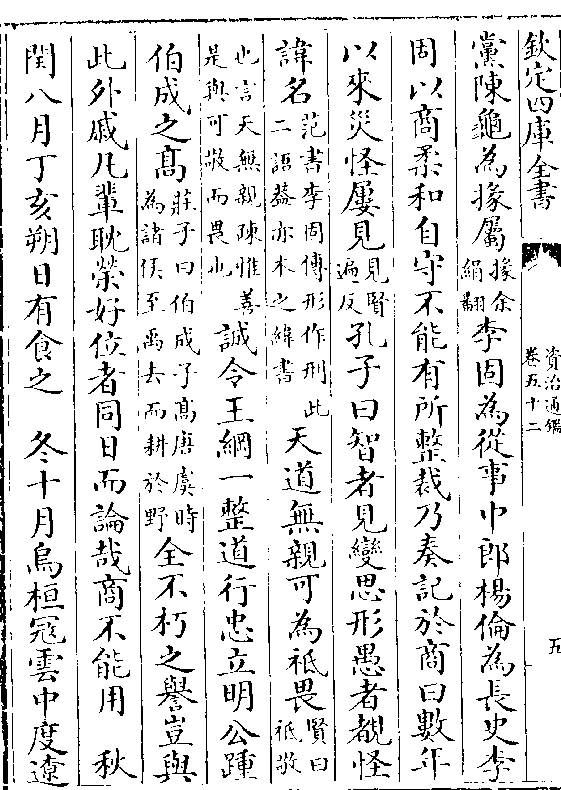 欽定四庫全書
資治通鑑
卷五十二
五
黨陳龜為掾屬掾余絹翻李固為從事中郎楊倫為長史李
固以商柔和自守不能有所整裁乃奏記於商曰數年
以來災怪屢見見賢遍反孔子曰智者見變思形愚者覩怪
諱名范書李固傳形作刑此二語葢亦本之緯書天道無親可為祗畏賢曰祗敬
也言天無親疎惟善是與可敬而畏也誠令王綱一整道行忠立明公踵
伯成之髙莊子曰伯成子髙唐虞時為諸侯至禹去而耕於野全不朽之譽豈與
此外戚凡輩耽榮好位者同日而論哉商不能用 秋
閏八月丁亥朔日有食之 冬十月烏桓冦雲中度遼